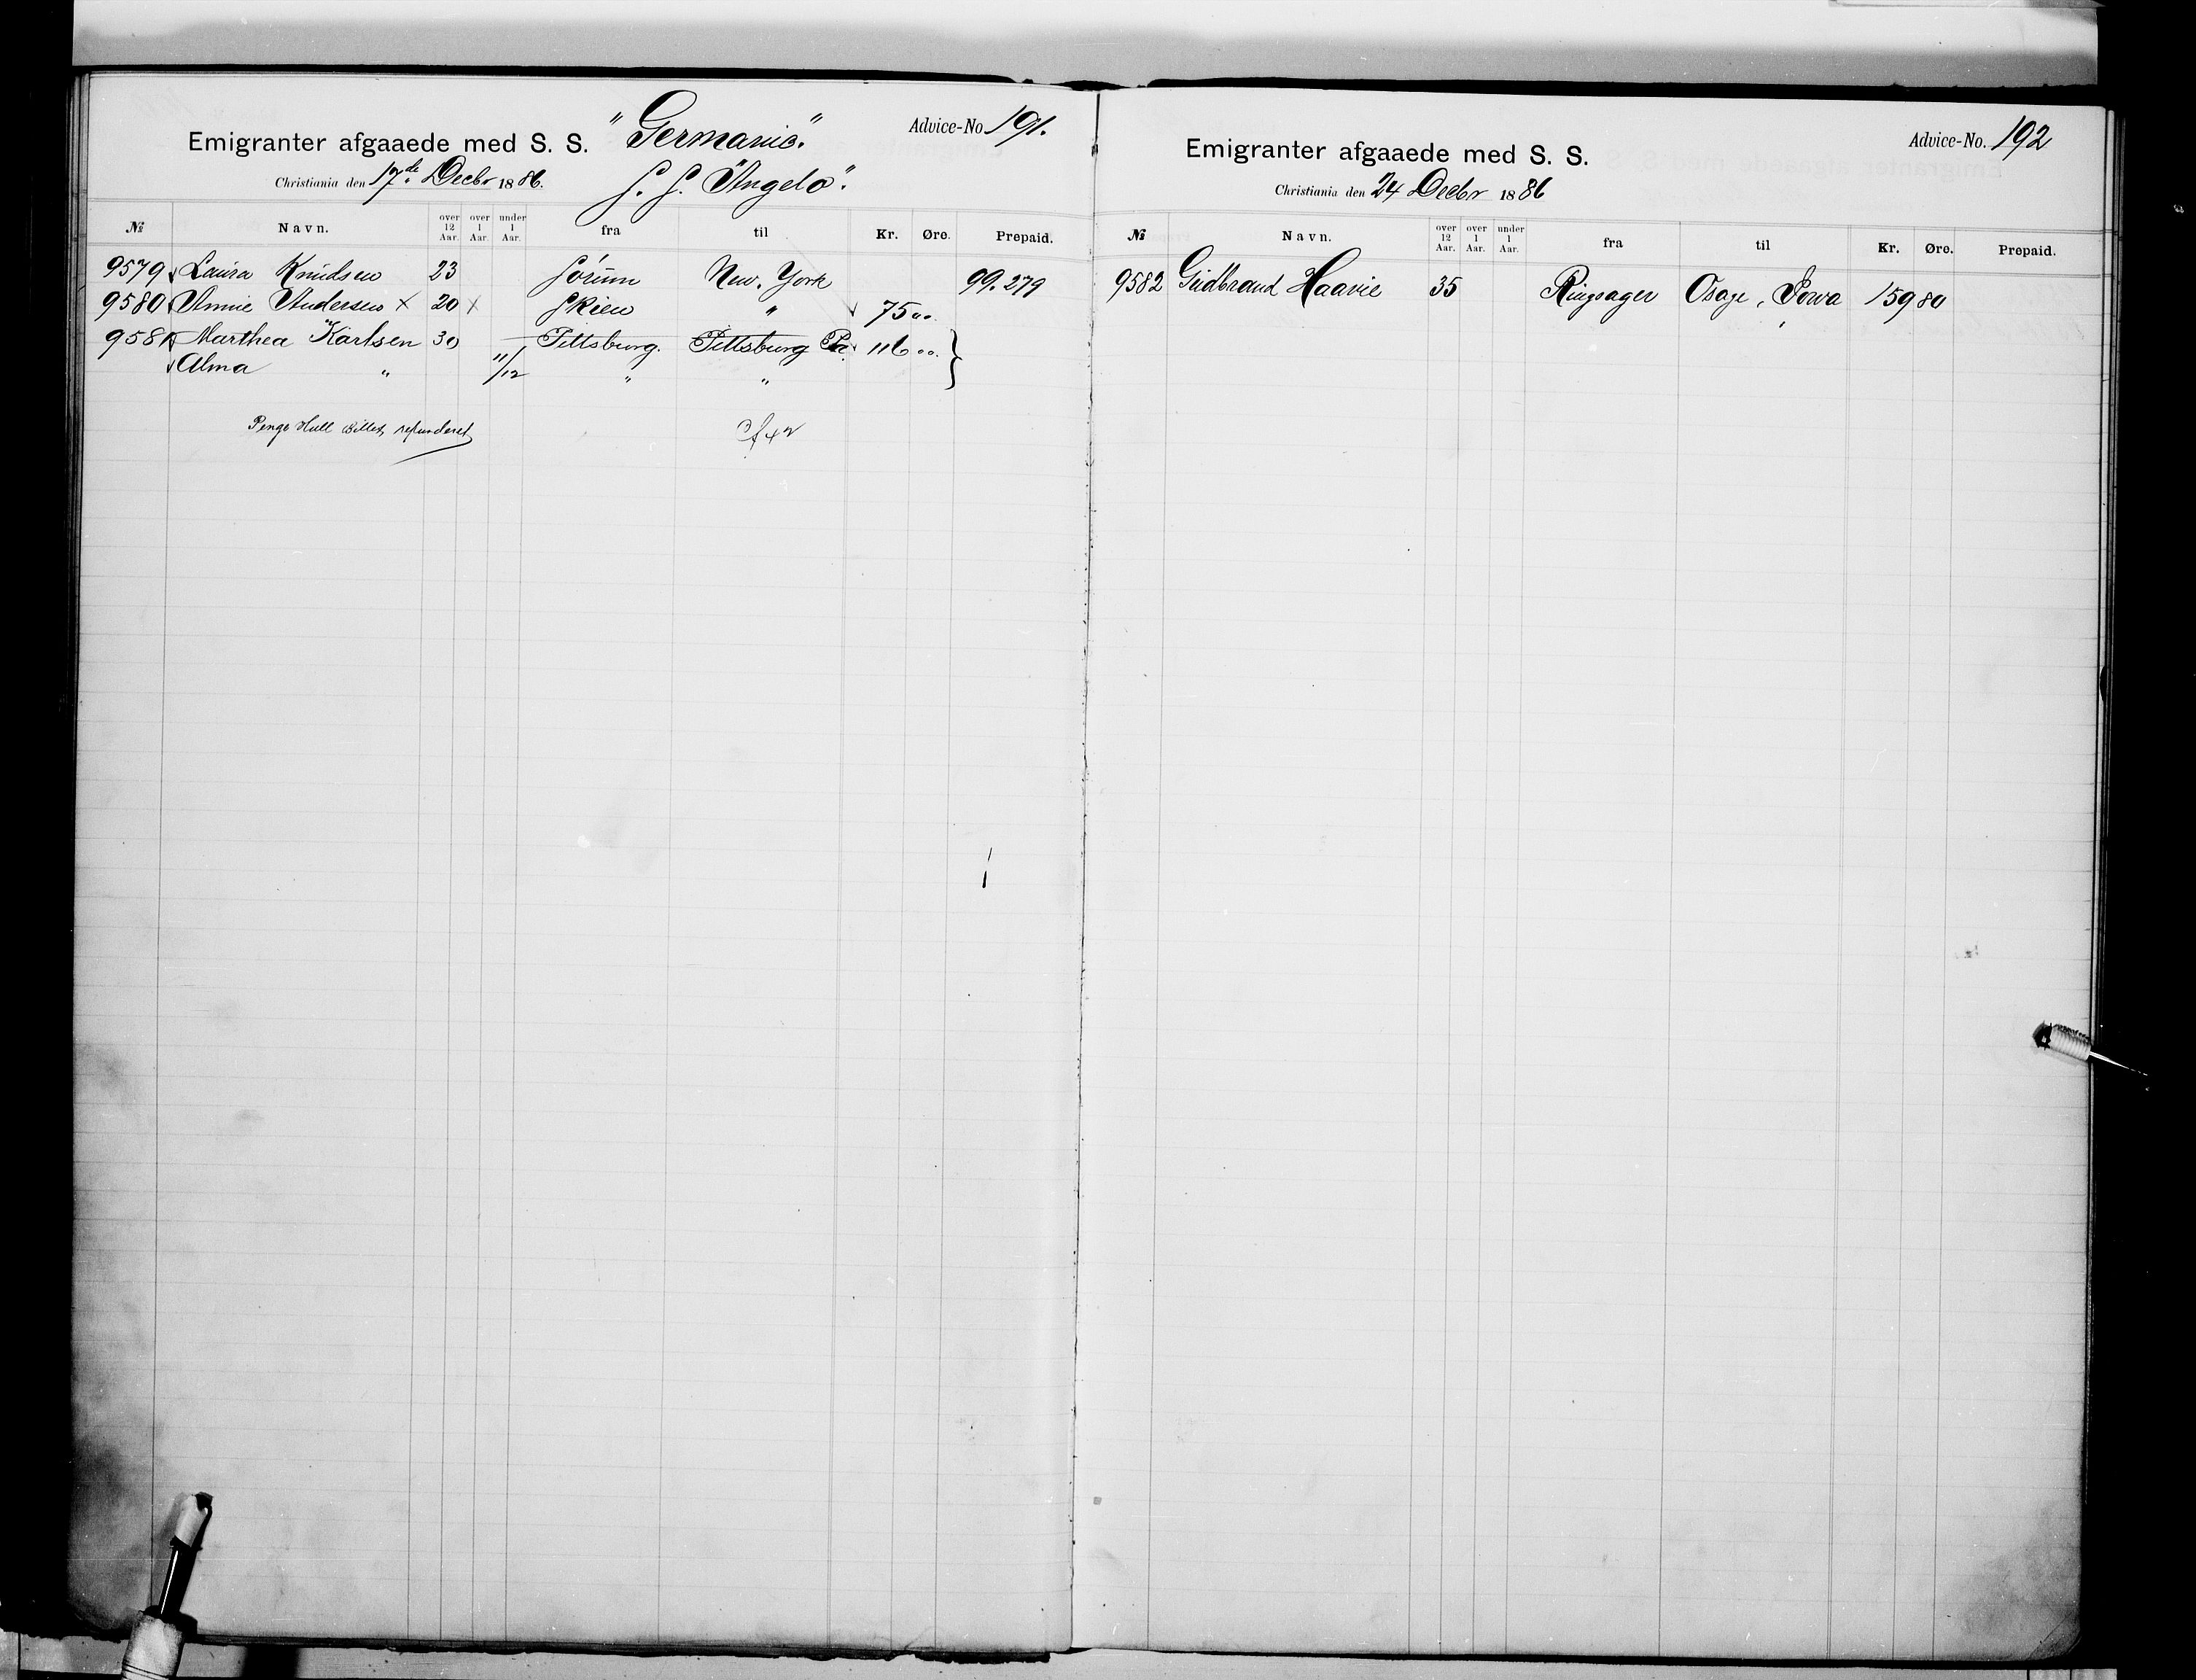 Emigranter afgaaede med S. S. "Germanic". Advice-No. 191.
Christiania den 17de Decbr 1886. S. S. "Angelo".
No Navn. over 12 Aar. over 1 Aar. under 1 Aar. fra til Kr. Øre. Prepaid.
9579 Laura Knudsen 23 Sørum New. York 99.279
9580 Annie Andersen x 20 x Skien " 75 00
9581 Marthea Karlsen 30 Pittsburg. Pittsburg Pa. 116 00
Alma " 11/12 " "
Penge Hull Billet refunderet
Emigranter afgaaede med S. S. Advice-No. 192
Christiania den 24 Decbr 1886
No Navn. over 12 Aar. over 1 Aar. under 1 Aar. fra til Kr. Øre. Prepaid.
9582 Gudbrand Haavie 35 Ringsager Osage, Iowa 159 80